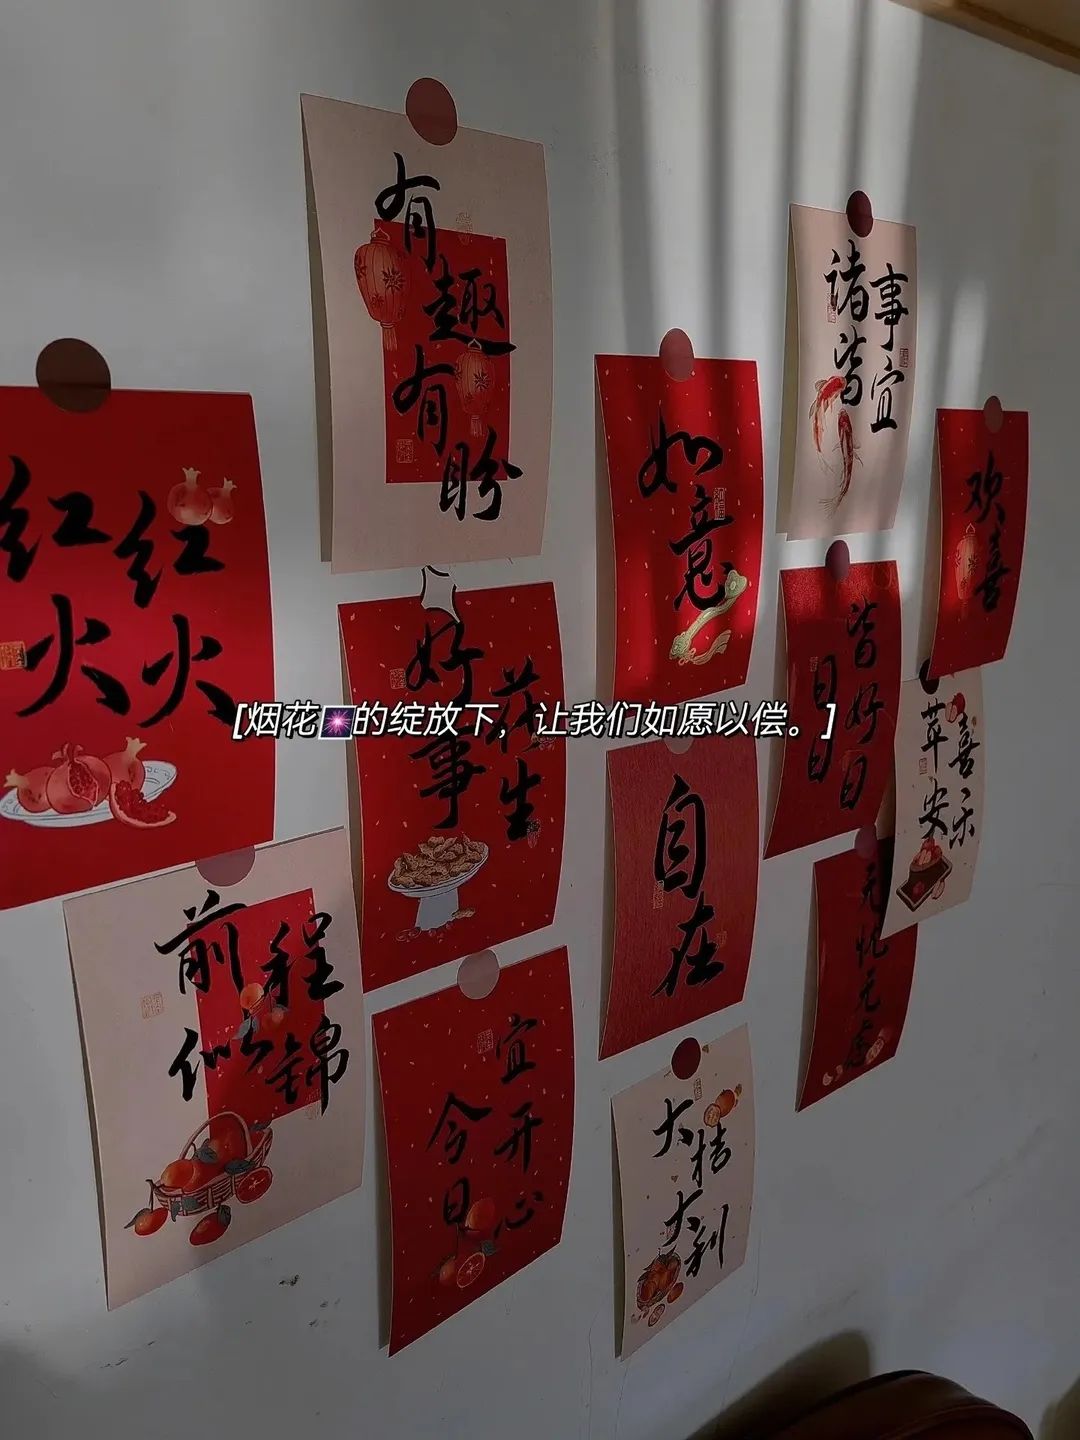 有趣有盼
诸事
皆宜
如意
欢喜
红红
火火
好事
花生
皆好日
日日
[烟花🎆的绽放下，让我们如愿以偿。]
喜乐
苹安
自在
前程
似锦
无忧无虑
宜开心
今日
大桔
大利